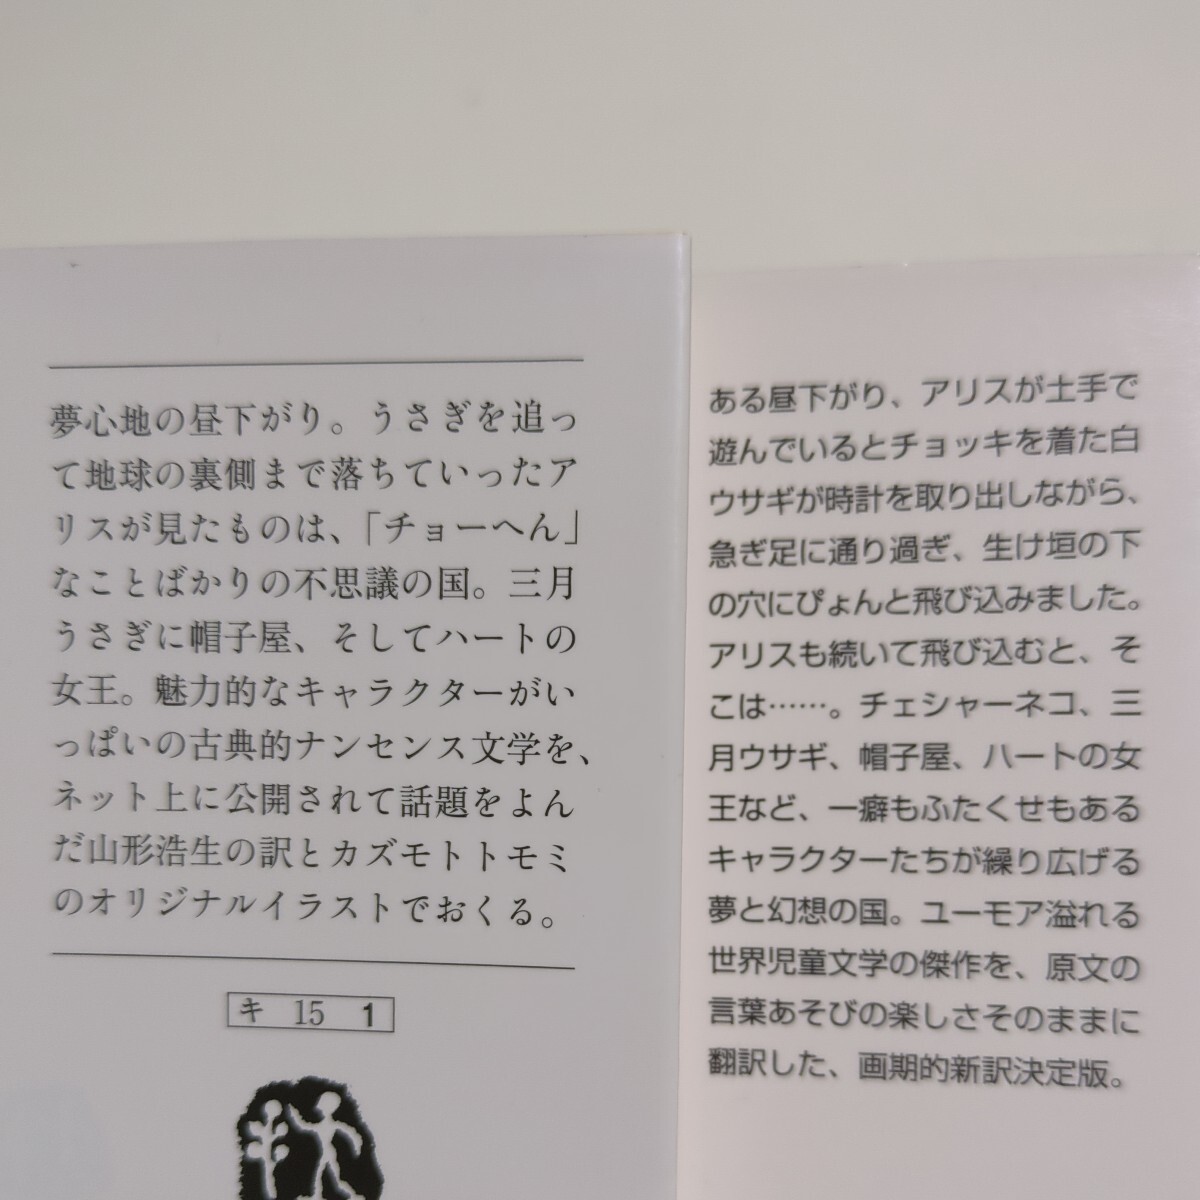 夢心地の昼下がり。うさぎを追っ
て地球の裏側まで落ちていったア
リスが見たものは、「チョーへん」
なことばかりの不思議の国。三月
うさぎに帽子屋、そしてハートの
女王。魅力的なキャラクターがい
っぱいの古典的ナンセンス文学を、
ネット上に公開されて話題をよん
だ山形浩生の訳とカズモトトモミ
のオリジナルイラストでおくる。
キ 15 1
ある昼下がり、アリスが土手で
遊んでいるとチョッキを着た白
ウサギが時計を取り出しながら、
急ぎ足に通り過ぎ、生け垣の下
の穴にぴょんと飛び込みました。
アリスも続いて飛び込むと、そ
こは……。チェシャーネコ、三
月ウサギ、帽子屋、ハートの女
王など、一癖もふたくせもある
キャラクターたちが繰り広げる
夢と幻想の国。ユーモア溢れる
世界児童文学の傑作を、原文の
言葉あそびの楽しさそのままに
翻訳した、画期的新訳決定版。